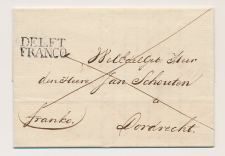 DELFT
FRANCO
Heer
den Heere Jan Schouten
a
Franko. Dordrecht.